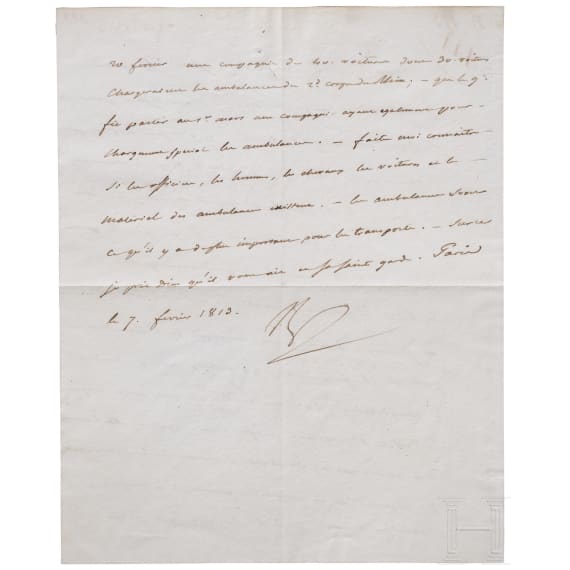 20 fevrier une compagnie de 40 voitures dont 30 voitures
chargeraient les ambulances du 2d corps du Rhin; - que le 9e
fit partir au 1r mars une compagnie ayant également pour
chargement special les ambulances. - faites moi connaitre
si les officiers, les hommes, les chevaux les voitures et le
materiel des ambulances existent. - les ambulances sont
ce qu'il y a de plus important pour les transports. - Sur ce
je prie dieu qu'il vous ait en sa sainte garde. Paris
le 7. fevrier 1813.
H